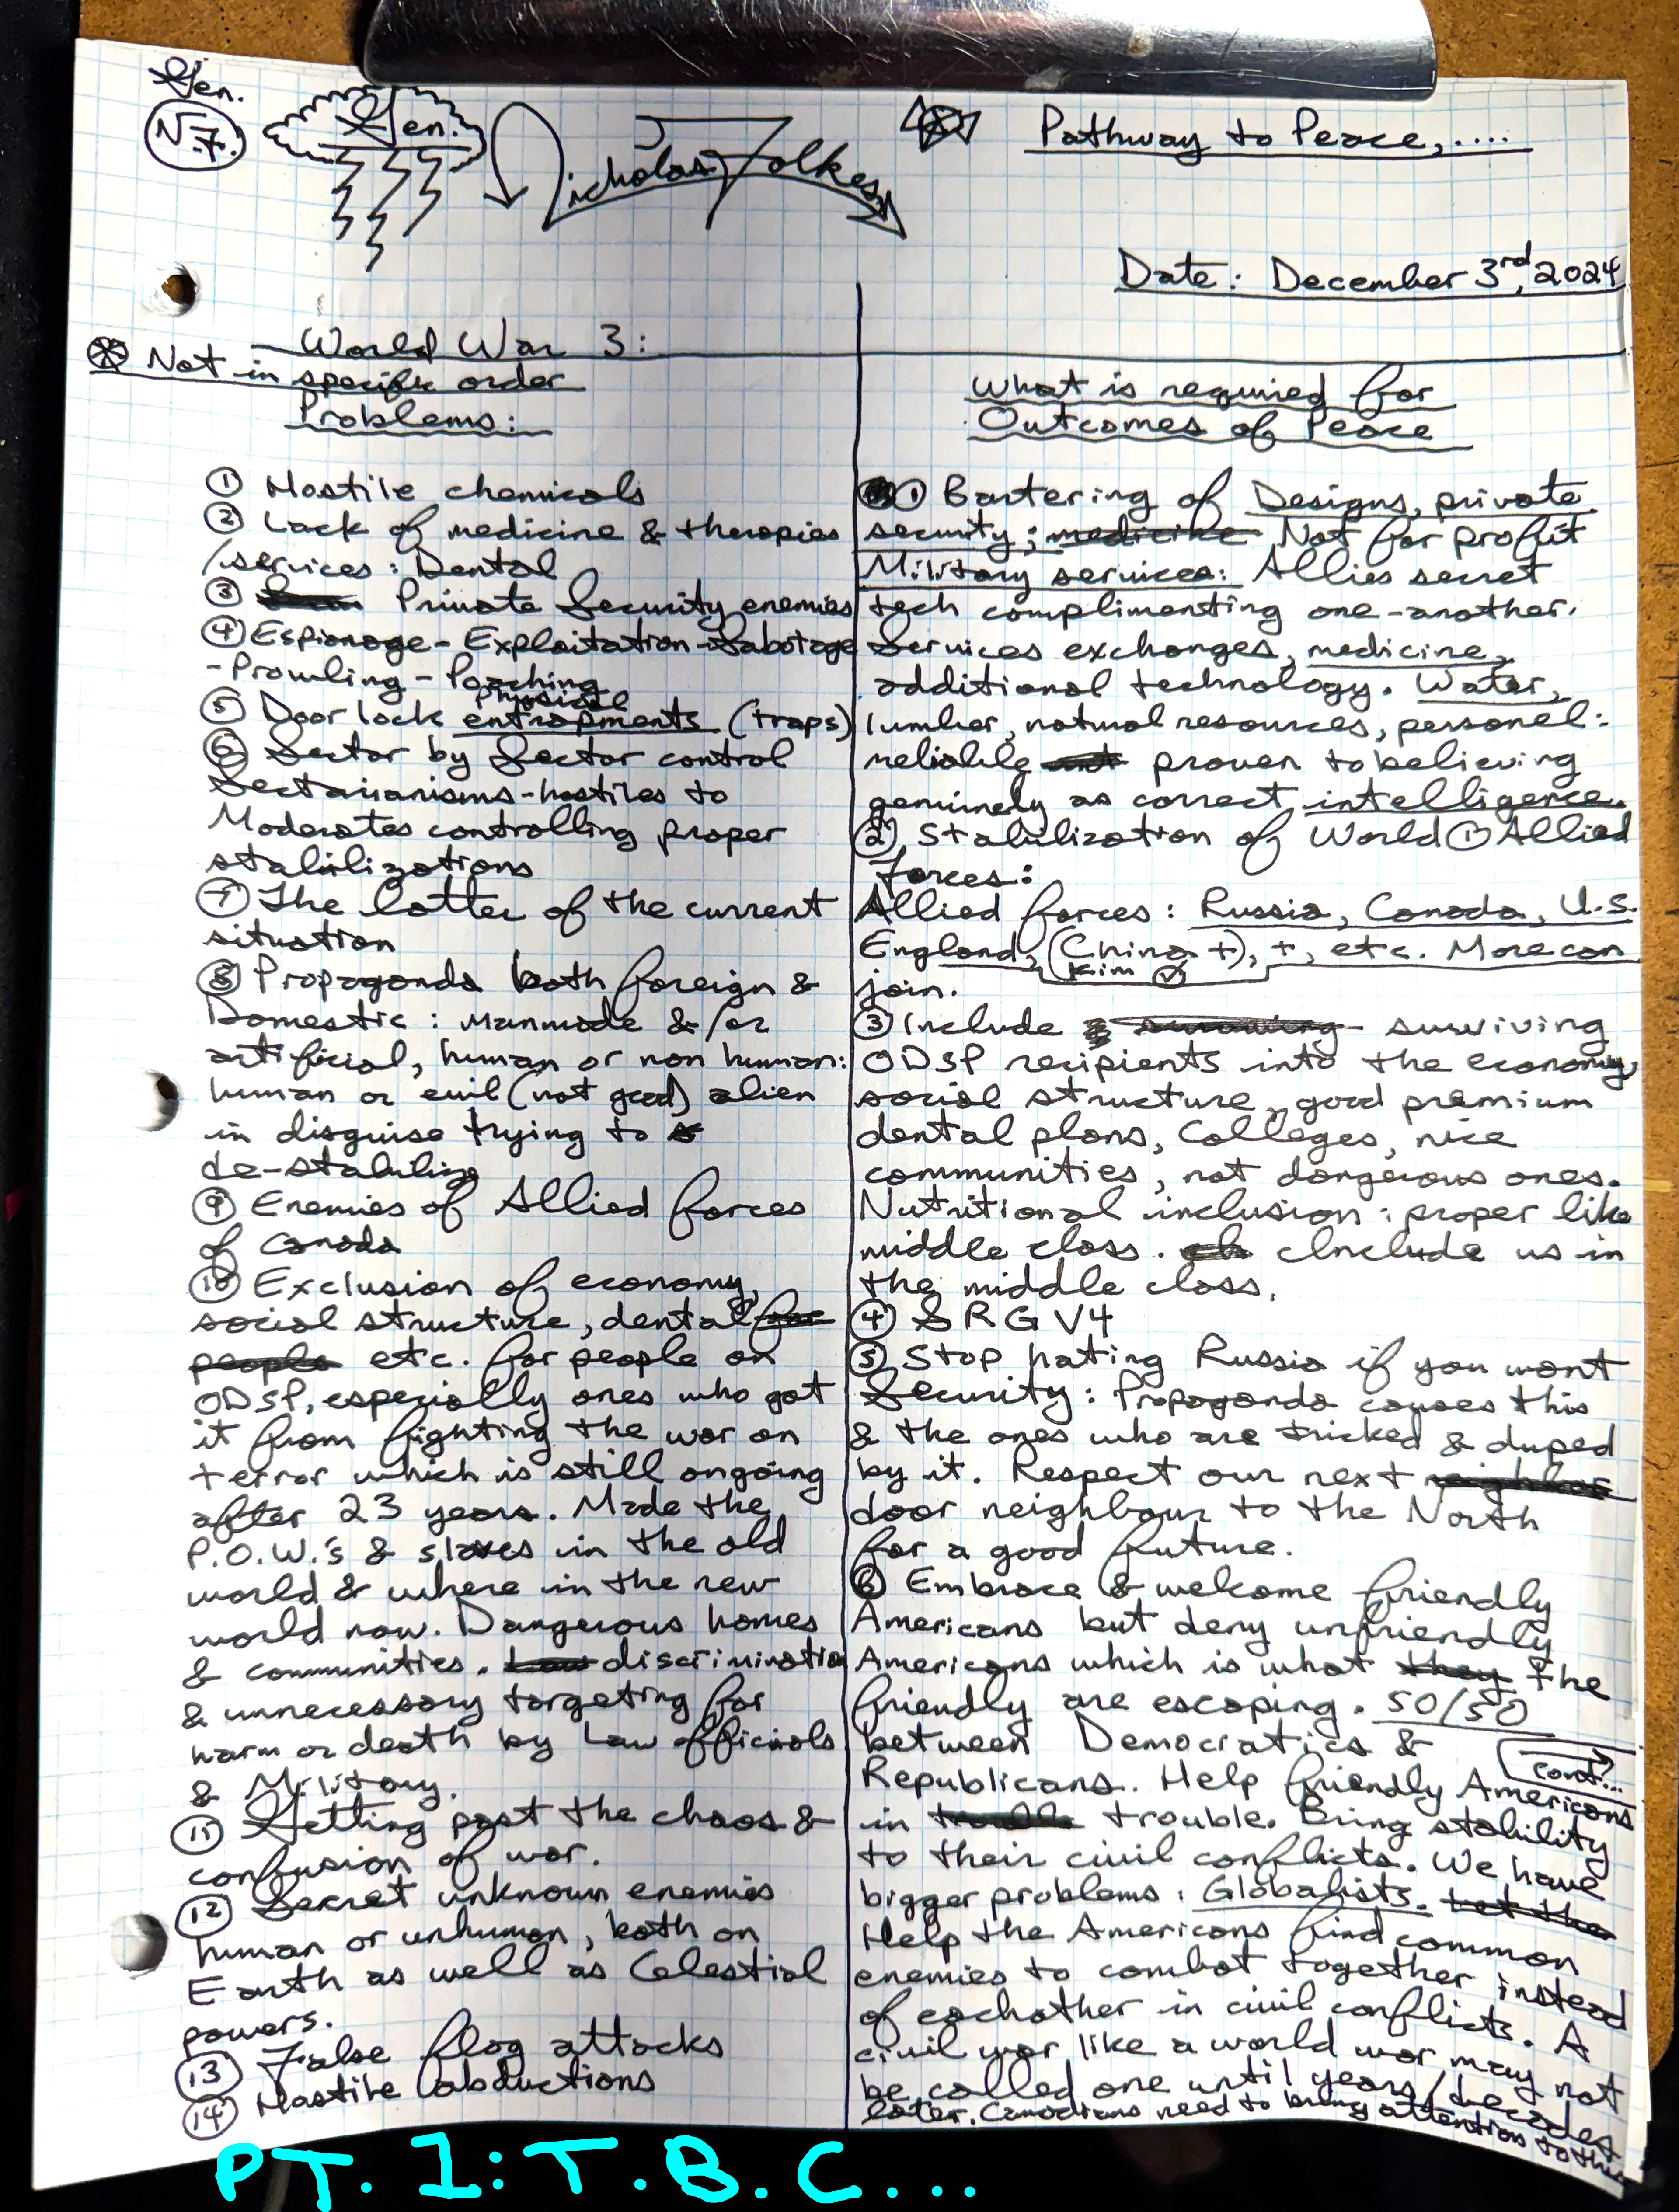 Gen.
N.7.
Gen.
Nicholas Folkes
Pathway to Peace,....
Date: December 3rd, 2024
World War 3:
Not in specific order
Problems:
① Hostile chemicals
② Lack of medicine & therapies
/services: Dental
③ Private Security enemies
④ Espionage - Exploitation - Sabotage
- Prowling - Poaching
physical
⑤ Door lock entrapments (traps)
⑥ Sector by Sector control
Sectarianisms-hostiles to
Moderates controlling proper
stabilizations
⑦ The latter of the current
situation
⑧ Propaganda both foreign &
Domestic: manmade &/or
artificial, human or non human:
human or evil (not good) alien
in disguise trying to
de-stabilize
⑨ Enemies of Allied forces
of Canada
⑩ Exclusion of economy,
social structure, dental
etc. for people on
ODSP, especially ones who got
it from fighting the war on
terror which is still ongoing
after 23 years. Made the
P.O.W.'s & slaves in the old
world & where in the new
world now. Dangerous homes
& communities. discrimination
& unnecessary targeting for
harm or death by Law officials
& Military.
⑪ Getting past the chaos &
confusion of war.
⑫ Secret unknown enemies
human or unhuman, both on
Earth as well as Celestial
powers.
⑬ False flag attacks
⑭ Hostile abductions
What is required for
Outcomes of Peace
① Bartering of Designs, private
security; medicine Not for profit
Military services: Allies secret
tech complimenting one-another.
Services exchanges, medicine,
additional technology. Water,
lumber, natural resources, personel:
reliable proven to believing
genuinely as correct intelligence.
② Stabilization of World ① Allied
Forces:
Allied forces: Russia, Canada, U.S.
England, (China +), +, etc. More can
Kim
join.
③ Include surviving
ODSP recipients into the economy,
social structure, good premium
dental plans, Colleges, nice
communities, not dangerous ones.
Nutritional inclusion: proper like
middle class. Include us in
the middle class.
④ SRGV4
⑤ Stop hating Russia if you want
Security: Propaganda causes this
& the ones who are tricked & duped
by it. Respect our next
door neighbour to the North
for a good future.
⑥ Embrace & welcome friendly
Americans but deny unfriendly
Americans which is what they the
friendly are escaping. 50/50
between Democratics &
Republicans. Help friendly Americans
cont...
in trouble. Bring stability
to their civil conflicts. We have
bigger problems: Globalists. Let the
Help the Americans find common
enemies to combat together instead
of eachother in civil conflicts. A
civil war like a world war may not
be called one until years/decades
later. Canadians need to bring attention to this
PT. 1: T.B.C...